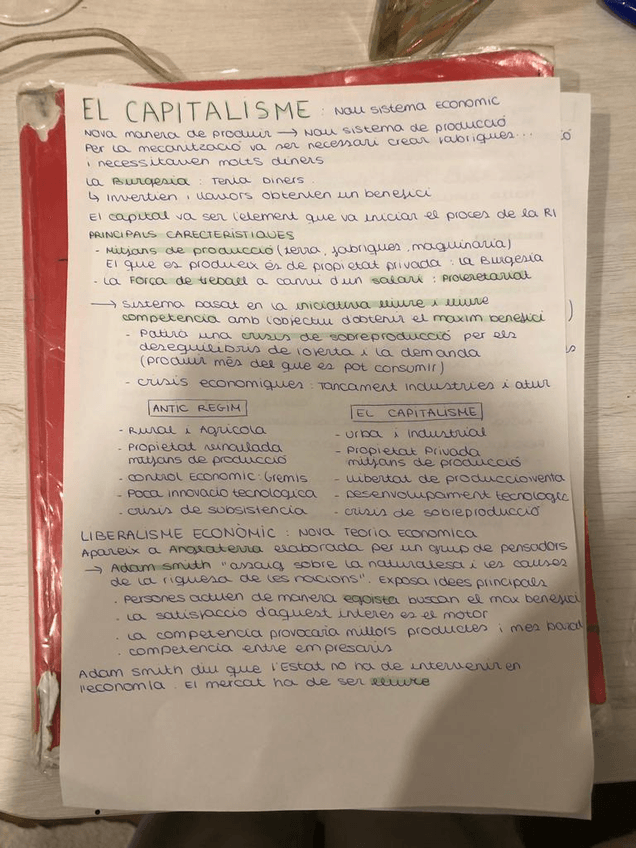 EL CAPITALISME : NOU SISTEMA ECONOMIC
NOVA MANERA DE PRODUIR → NOU SISTEMA DE PRODUCCIÓ
PER LA MECANITZACIÓ VA SER NECESSARI CREAR FABRIQUES...
I NECESSITAVEN MOLTS DINERS
LA BURGESIA : TENIA DINERS.
↳ INVERTIEN I LLAVORS OBTENIEN UN BENEFICI
EL CAPITAL VA SER L'ELEMENT QUE VA INICIAR EL PROCES DE LA RI
PRINCIPALS CARECTERÍSTIQUES
- MITJANS DE PRODUCCIÓ (TERRA, FABRIQUES, MAQUINÀRIA)
EL QUE ES PRODUEIX ÉS DE PROPIETAT PRIVADA : LA BURGESIA
- LA FORÇA DE TREBALL A CANVI D'UN SALARI : PROLERETARIAT
→ SISTEMA BASAT EN LA INICIATIVA LLIURE I LLIURE
COMPETENCIA AMB L'OBJECTIU D'OBTENIR EL MAXIM BENEFICI
- PATIRÀ UNA CRISIS DE SOBREPRODUCCIÓ PER ELS
DESEQUILIBRIS DE L'OFERTA I LA DEMANDA
(PRODUIR MÉS DEL QUE ES POT CONSUMIR)
- CRISIS ECONOMIQUES : TANCAMENT INDUSTRIES I ATUR
ANTIC REGIM
- RURAL I AGRÍCOLA
- PROPIETAT VINCULADA
MITJANS DE PRODUCCIÓ
- CONTROL ECONOMIC : GREMIS
- POCA INNOVACIÓ TECNOLOGICA
- CRISIS DE SUBSISTÈNCIA
EL CAPITALISME
- URBÀ I INDUSTRIAL
- PROPIETAT PRIVADA
MITJANS DE PRODUCCIÓ
- LLIBERTAT DE PRODUCCIO I VENTA
- DESENVOLUPAMENT TECNOLOGIC
- CRISIS DE SOBREPRODUCCIÓ
LIBERALISME ECONÒMIC : NOVA TEORIA ECONOMICA
APAREIX A ANGLATERRA ELABORADA PER UN GRUP DE PENSADORS
→ ADAM SMITH "ASSAIG SOBRE LA NATURALESA I LES CAUSES
DE LA RIQUESA DE LES NACIONS". EXPOSA IDEES PRINCIPALS
. PERSONES ACTUEN DE MANERA EGOISTA BUSCAN EL MAX BENEFICI
. LA SATISFACCIÓ D'AQUEST INTERÈS ES EL MOTOR
. LA COMPETENCIA PROVOCARIA MILLORS PRODUCTES I MES
. COMPETENCIA ENTRE EMPRESARIS
ADAM SMITH DIU QUE L'ESTAT NO HA DE INTERVENIR EN
L'ECONOMIA. EL MERCAT HA DE SER LLIURE